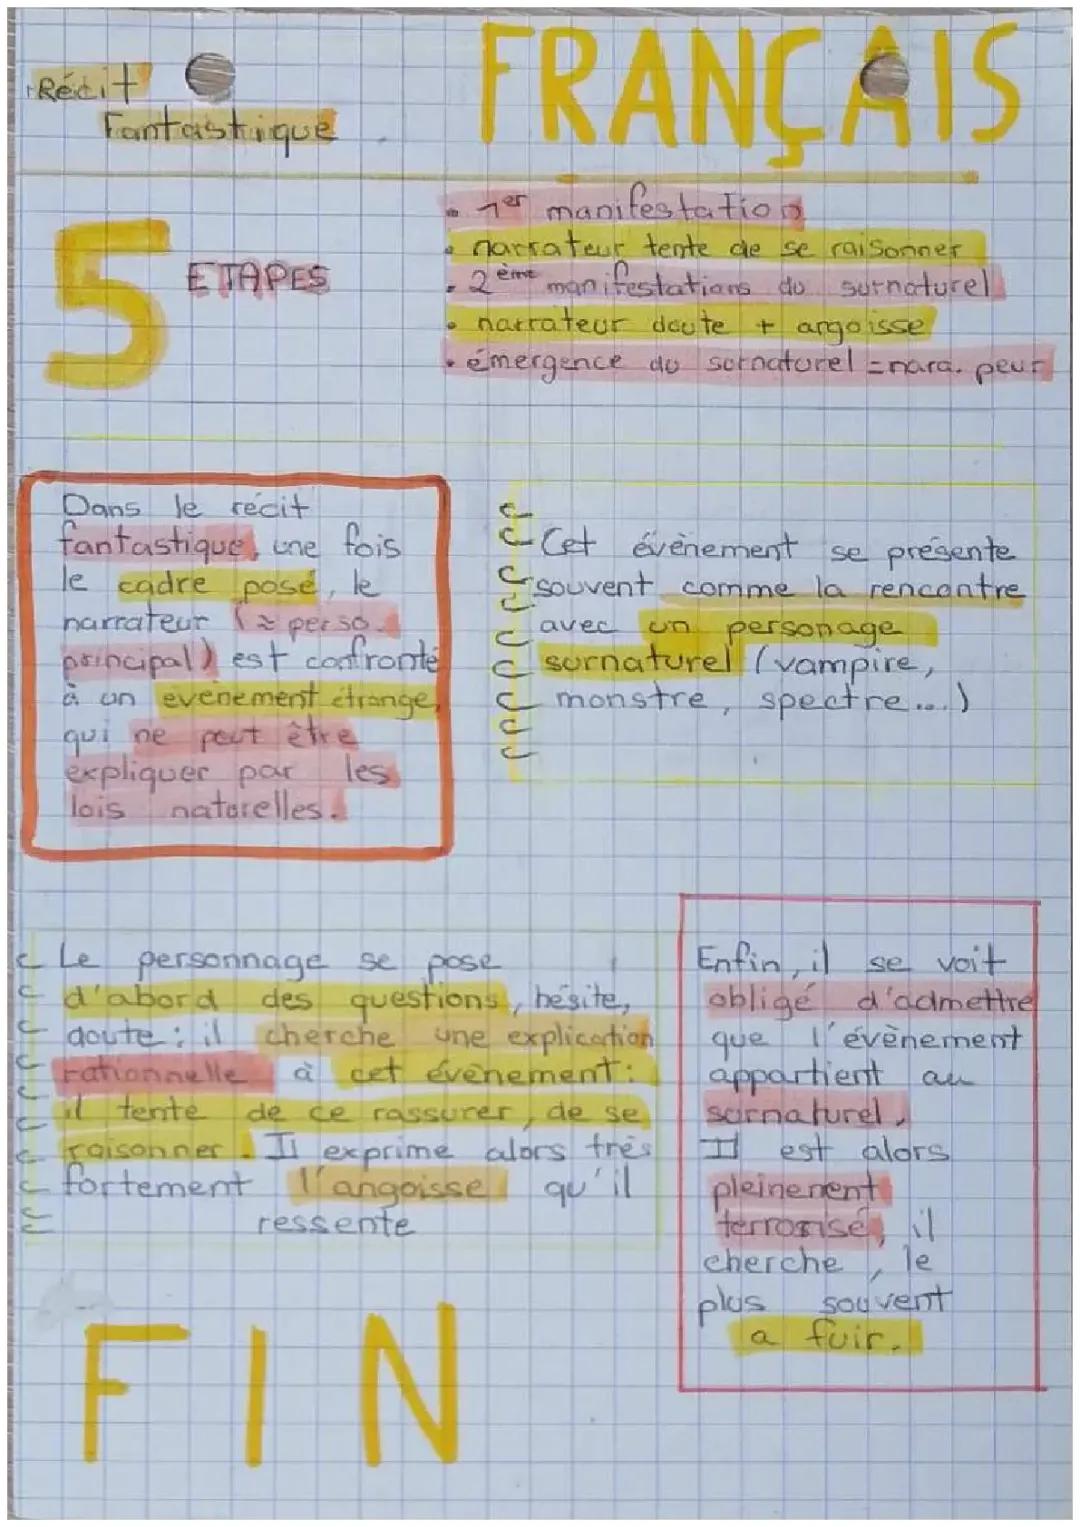 FRANÇAIS
Récit
Fantastique
5 ETAPES
• 1er manifestation
• narrateur tente de se raisonner
• 2ème manifestations du surnaturel
• narrateur doute + angoisse
• émergence du surnaturel = nara. peur
Dans le récit
fantastique, une fois
le cadre posé, le
narrateur (≈ perso.
principal) est confronté
à un evénement étrange,
qui ne peut être
expliquer par les
lois naturelles.
Cet évènement se présente
souvent comme la rencontre
avec un personage
surnaturel (vampire,
monstre, spectre...)
Le personnage se pose
d'abord des questions, hésite,
doute : il cherche une explication
rationnelle à cet événement :
il tente de ce rassurer, de se
raisonner. Il exprime alors très
fortement l'angoisse qu'il
ressente
Enfin, il se voit
obligé d'admettre
que l'évènement
appartient au
surnaturel,
Il est alors
pleinement
terrorisé, il
cherche, le
plus souvent
a fuir.
FIN